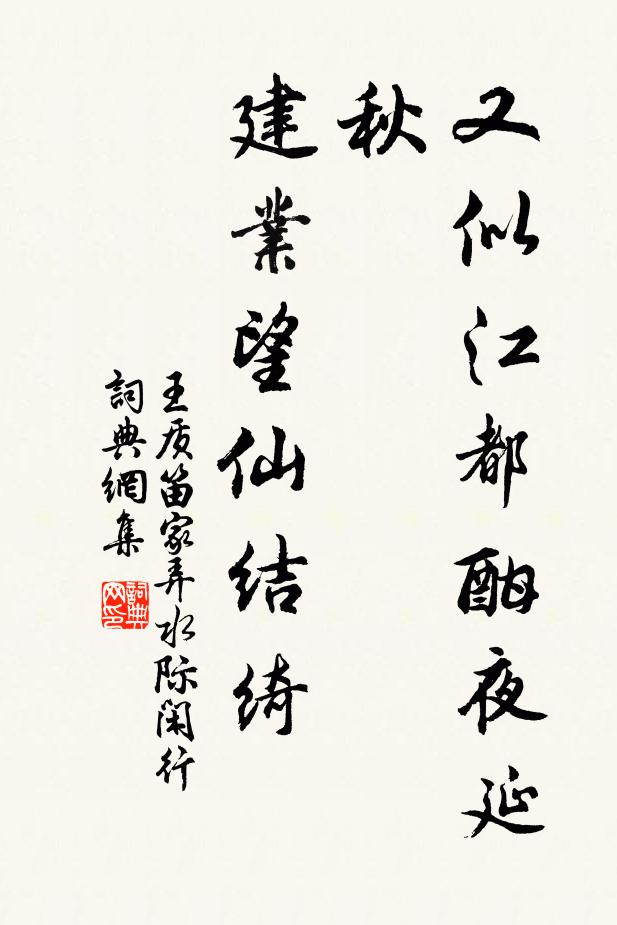 又似江都酣夜延
秋
建業望仙结绮
王质笛家弄水际闲行
詞典網集
詞典网印